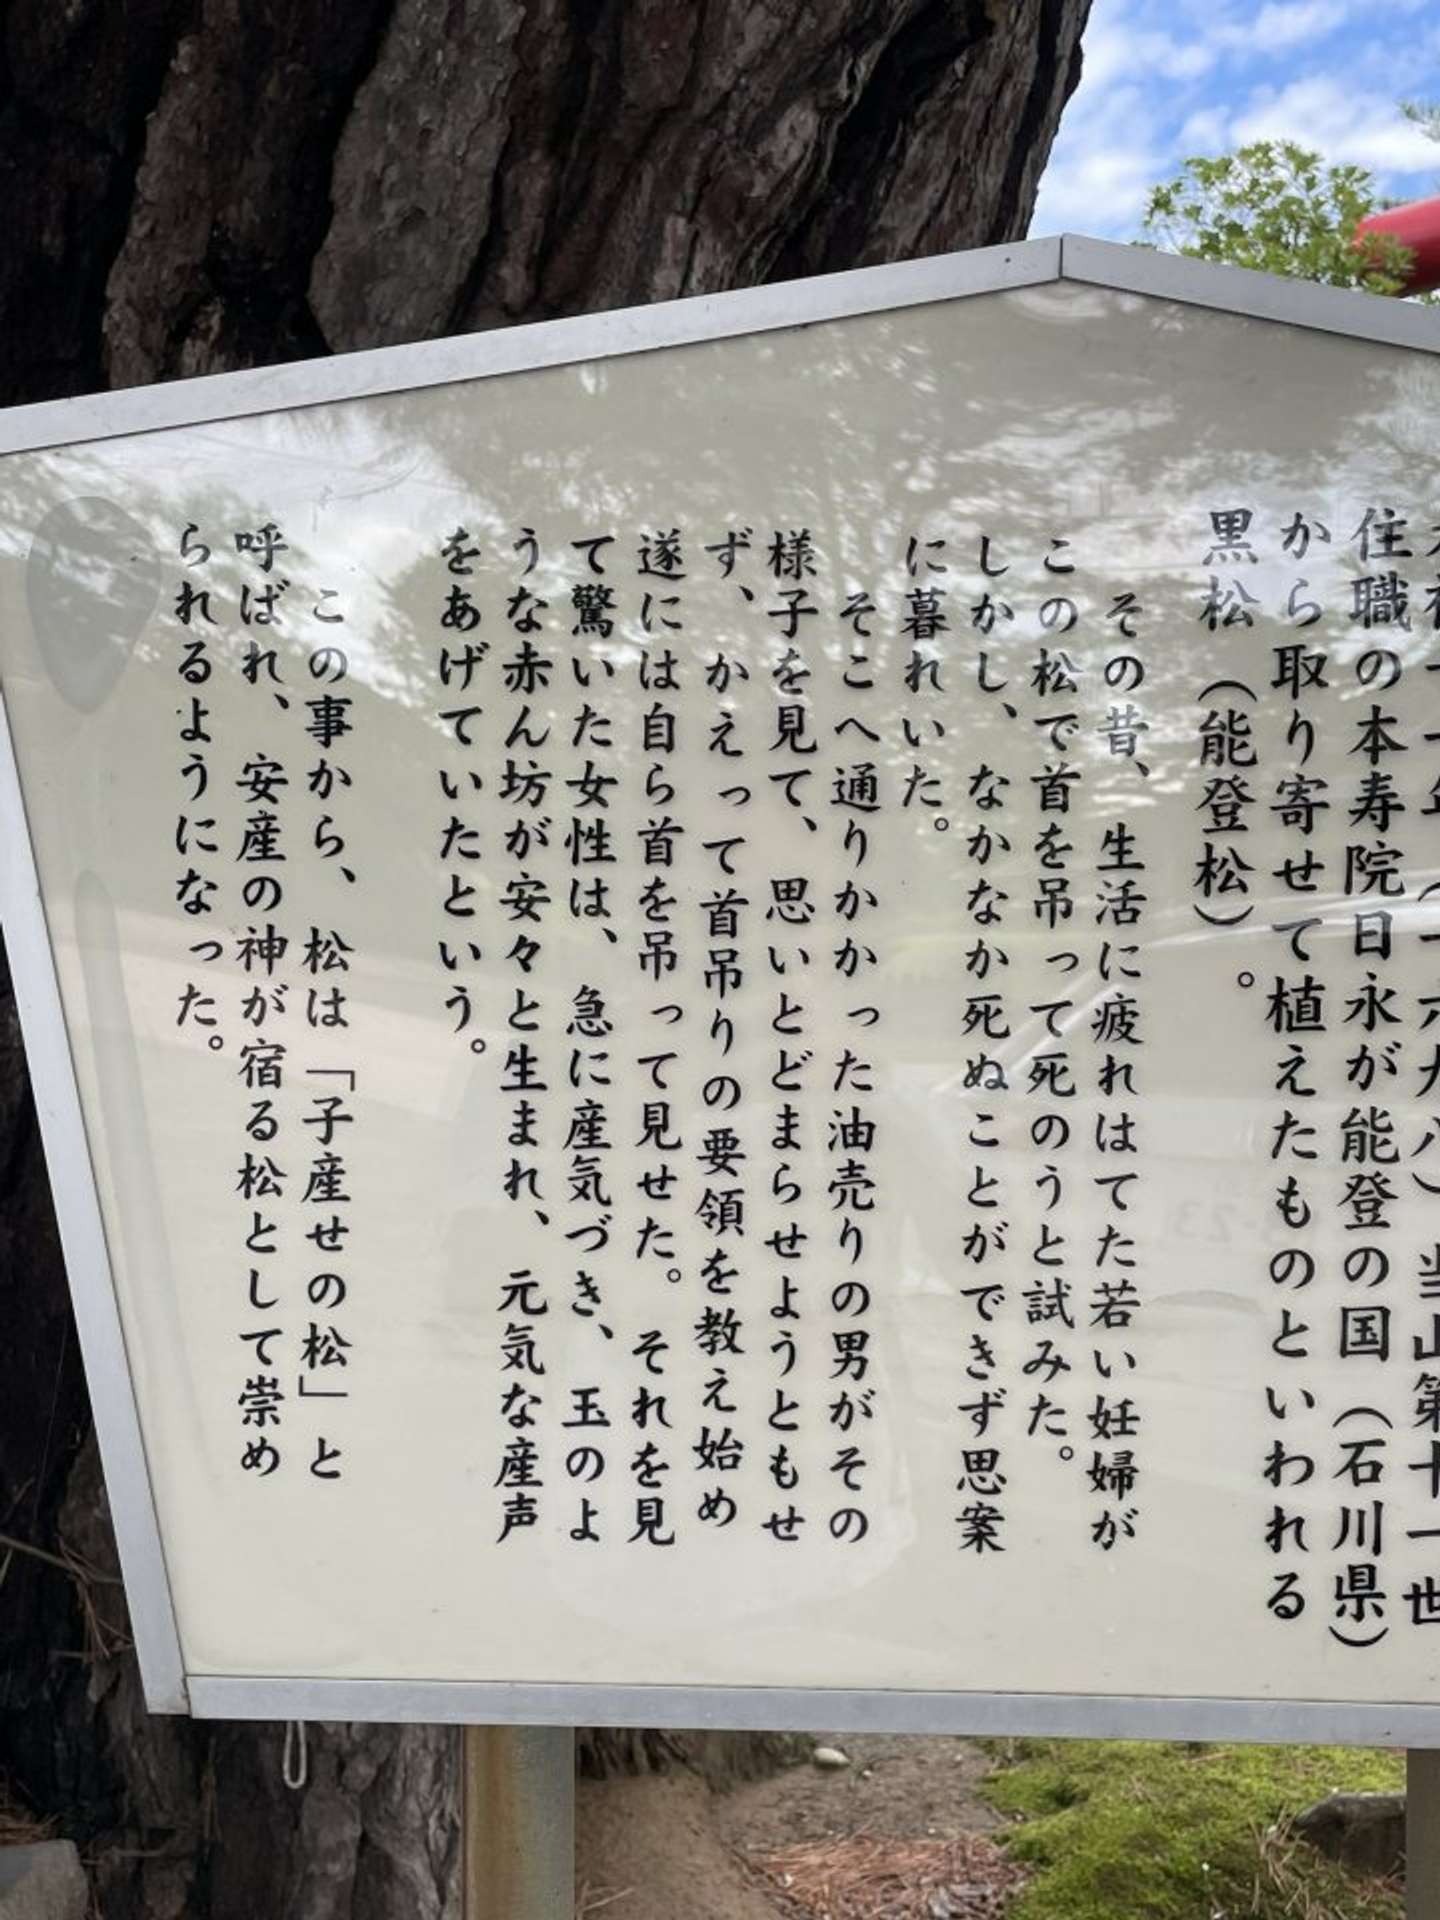 十一年（一六九八）当山第十一世
住職の本寿院日永が能登の国（石川県）
から取り寄せて植えたものといわれる
黒松（能登松）。
その昔、生活に疲れはてた若い妊婦が
この松で首を吊って死のうと試みた。
しかし、なかなか死ぬことができず思案
に暮れいた。
そこへ通りかかった油売りの男がその
様子を見て、思いとどまらせようともせ
ず、かえって首吊りの要領を教え始め
遂には自ら首を吊って見せた。それを見
て驚いた女性は、急に産気づき、玉のよ
うな赤ん坊が安々と生まれ、元気な産声
をあげていたという。
この事から、松は「子産せの松」と
呼ばれ、安産の神が宿る松として崇め
られるようになった。